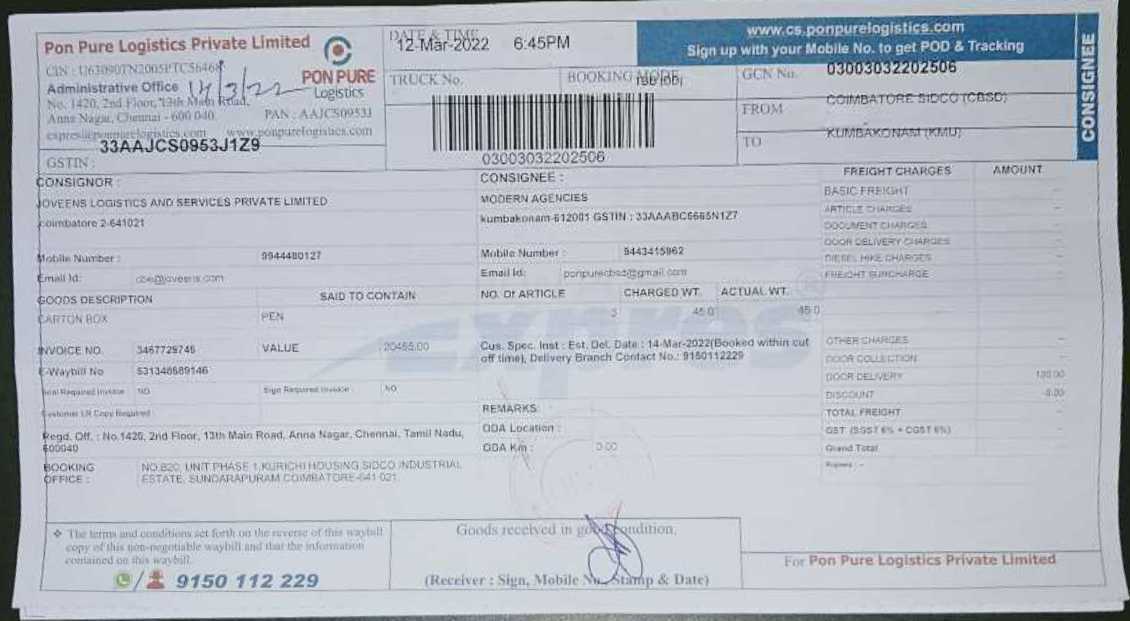 Pon Pure Logistics Private Limited
CIN : U63090TN2005PTC56468
Administrative Office
14/3/22
No. 1420, 2nd Floor, 13th Main Road,
Anna Nagar, Chennai - 600 040. PAN : AAJCS0953J
expres@ponpurelogistics.com www.ponpurelogistics.com
33AAJCS0953J1Z9
GSTIN :
PON PURE
Logistics
DATE & TIME
12-Mar-2022 6:45PM
TRUCK No. BOOKING MODE
03003032202506
www.cs.ponpurelogistics.com
Sign up with your Mobile No. to get POD & Tracking
GCN No. 03003032202506
FROM COIMBATORE SIDCO (CBSD)
TO KUMBAKONAM (KMU)
CONSIGNEE
CONSIGNOR :
JOVEENS LOGISTICS AND SERVICES PRIVATE LIMITED
coimbatore 2-641021
Mobile Number : 9944480127
Email Id: cbe@joveens.com
CONSIGNEE :
MODERN AGENCIES
kumbakonam-612001 GSTIN : 33AAABC5665N1Z7
Mobile Number : 9443415962
Email Id: ponpurecbsd@gmail.com
GOODS DESCRIPTION SAID TO CONTAIN NO. Of ARTICLE CHARGED WT. ACTUAL WT.
CARTON BOX PEN 3 45.0 45.0
INVOICE NO. 3467729746 VALUE 20455.00
E-Waybill No 531348689146
NO Sign Required Invoice : NO
Customer LR Copy Required :
Cus. Spec. Inst : Est. Del. Date : 14-Mar-2022(Booked within cut
off time), Delivery Branch Contact No.: 9150112229
REMARKS:
ODA Location :
ODA Km : 0.00
Regd. Off. : No.1420, 2nd Floor, 13th Main Road, Anna Nagar, Chennai, Tamil Nadu,
600040
BOOKING OFFICE : NO.B20, UNIT PHASE 1,KURICHI HOUSING SIDCO INDUSTRIAL
ESTATE, SUNDARAPURAM COIMBATORE-641 021.
FREIGHT CHARGES AMOUNT
BASIC FREIGHT
ARTICLE CHARGES
DOCUMENT CHARGES
DOOR DELIVERY CHARGES
DIESEL HIKE CHARGES
FREIGHT SURCHARGE
OTHER CHARGES
DOOR COLLECTION
DOOR DELIVERY 100.00
DISCOUNT -0.00
TOTAL FREIGHT
GST (SGST 6% + CGST 6%)
Grand Total
Rupees : -
expres
❖ The terms and conditions set forth on the reverse of this waybill
copy of this non-negotiable waybill and that the information
contained on this waybill.
9150 112 229
Goods received in good condition.
(Receiver : Sign, Mobile No. Stamp & Date)
For Pon Pure Logistics Private Limited